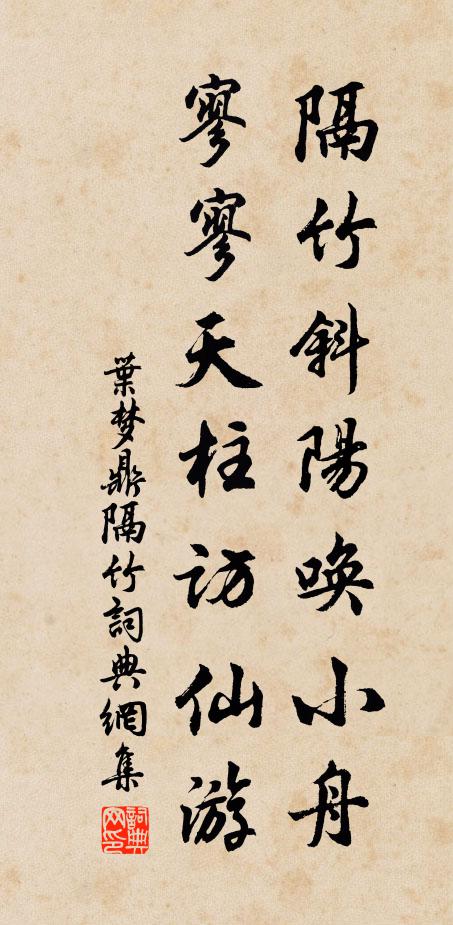 隔竹斜陽喚小舟
寥寥天柱訪仙游
葉梦鼎隔竹詞典網集
詞典网印